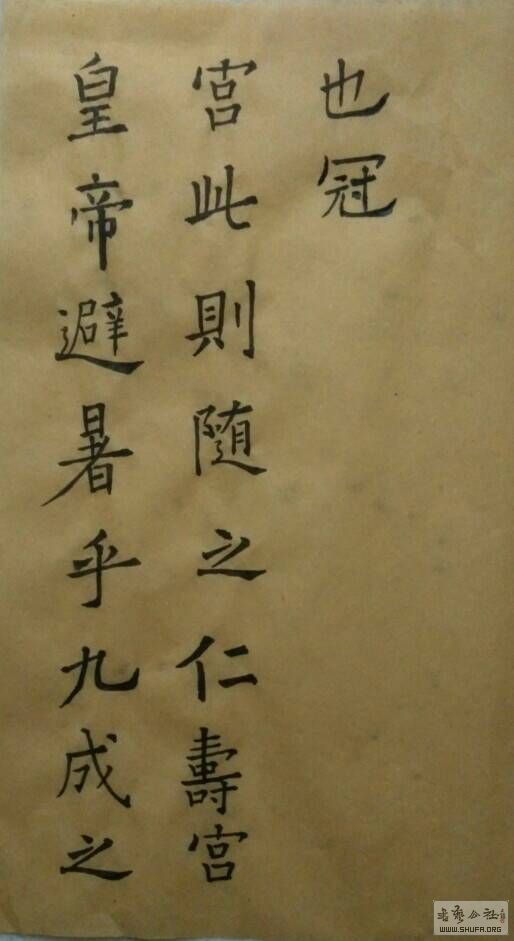 皇帝避暑乎九成之
宮此則随之仁壽宮
也冠
WWW.SHUFA.ORG